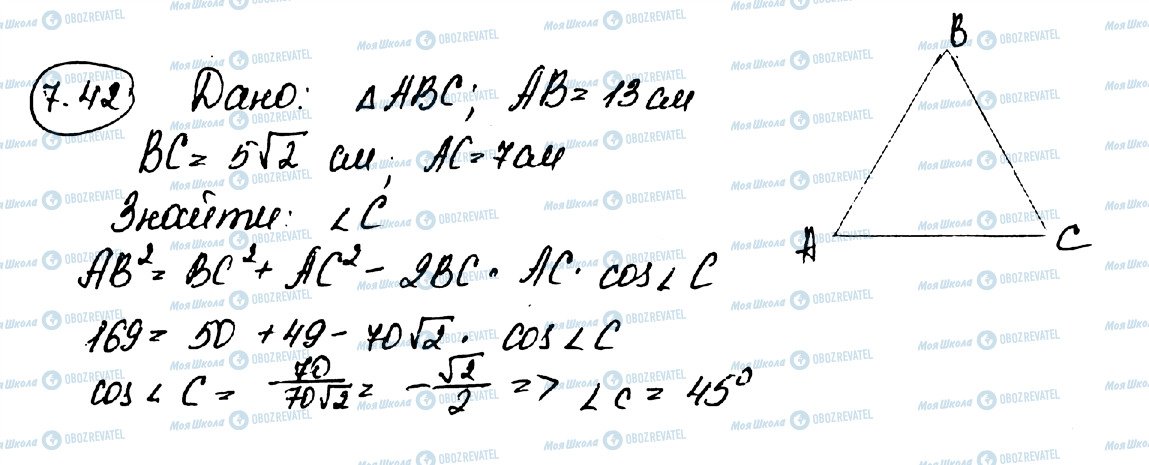 7.42 Дано: △ABC; AB = 13 см
BC = 5√2 см; AC = 7 см
Знайти: ∠C
AB² = BC² + AC² - 2BC · AC · cos∠C
169 = 50 + 49 - 70√2 · cos∠C
cos∠C = -70/70√2 = -√2/2 => ∠C = 45°
B
A
C
Моя Школа OBOZREVATEL